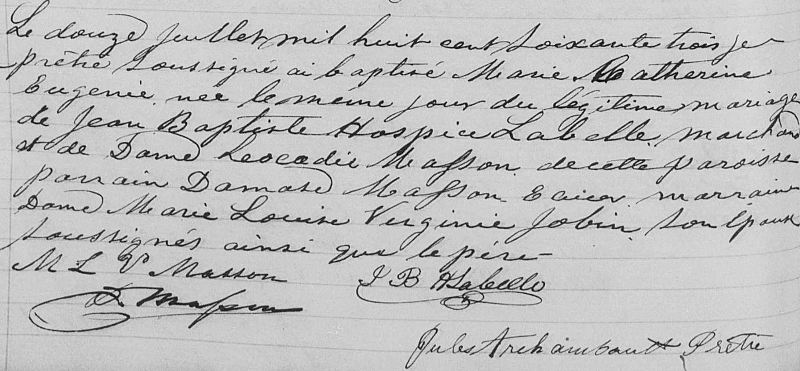 Le douze Juillet mil huit cent soixante trois je
prêtre soussigné ai baptisé Marie Catherine
Eugenie née le même jour du légitime mariage
de Jean Baptiste Hospice Labelle marchand
et de Dame Leocadie Masson de cette paroisse
parrain Damase Masson Ecuier marraine
Dame Marie Louise Virginie Jobin son épouse
soussignés ainsi que le père
M L V Masson J B H Labelle
D. Masson
Jules Archambault Prêtre